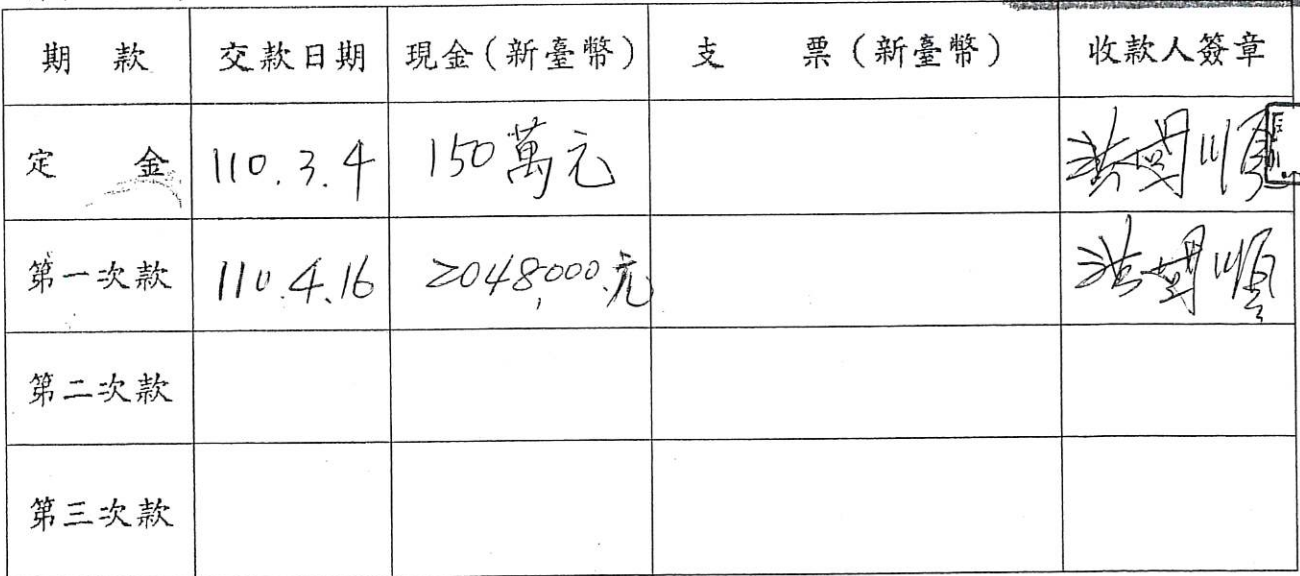 期 款 交款日期 現金(新臺幣) 支 票(新臺幣) 收款人簽章
定 金 110.3.4 150萬元 洪國順
第一次款 110.4.16 2048,000元 洪國順
第二次款
第三次款